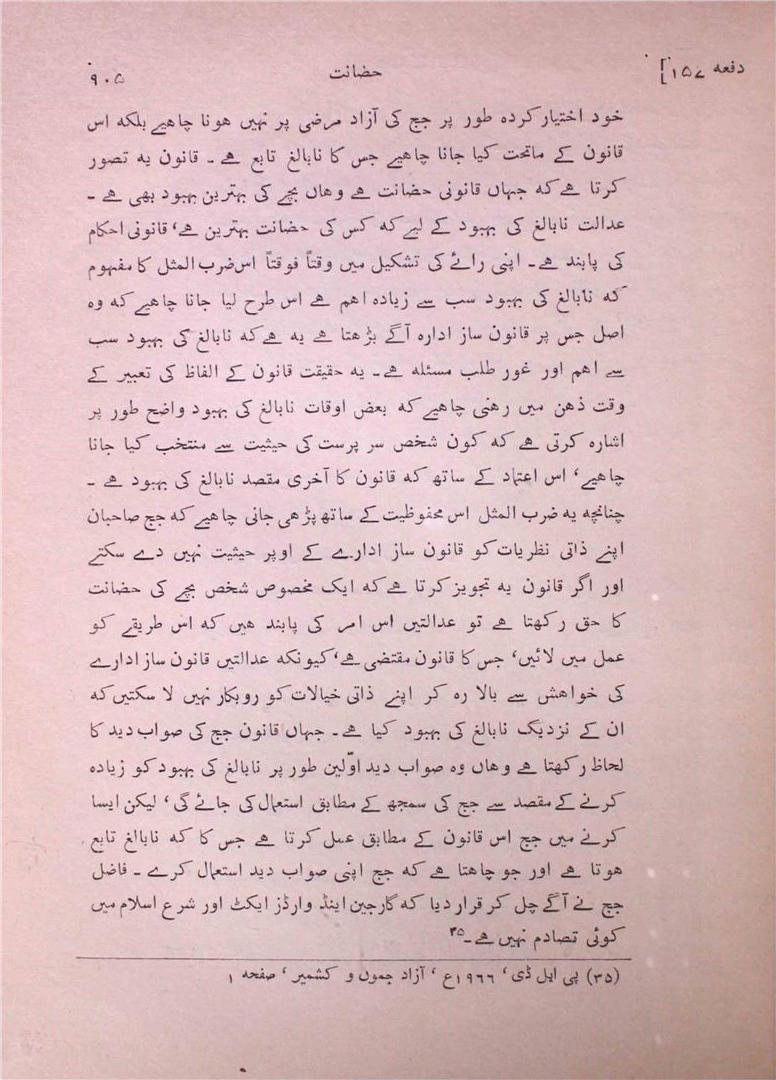 دفعہ ۱۵۷]
حضانت
۹۰۵
خود اختیار کردہ طور پر جج کی آزاد مرضی پر نہیں ہونا چاہیے بلکہ اس
قانون کے ماتحت کیا جانا چاہیے جس کا نابالغ تابع ہے ۔ قانون یہ تصور
کرتا ہے کہ جہاں قانونی حضانت ہے وہاں بچے کی بہترین بہبود بھی ہے ۔
عدالت نابالغ کی بہبود کے لیے کہ کس کی حضانت بہترین ہے، قانونی احکام
کی پابند ہے۔ اپنی رائے کی تشکیل میں وقتاً فوقتاً اس ضرب المثل کا مفہوم
کہ نابالغ کی بہبود سب سے زیادہ اہم ہے اس طرح لیا جانا چاہیے کہ وہ
اصل جس پر قانون ساز ادارہ آگے بڑھتا ہے یہ ہے کہ نابالغ کی بہبود سب
سے اہم اور غور طلب مسئلہ ہے۔ یہ حقیقت قانون کے الفاظ کی تعبیر کے
وقت ذہن میں رہنی چاہیے کہ بعض اوقات نابالغ کی بہبود واضح طور پر
اشارہ کرتی ہے کہ کون شخص سر پرست کی حیثیت سے منتخب کیا جانا
چاہیے، اس اعتماد کے ساتھ کہ قانون کا آخری مقصد نابالغ کی بہبود ہے ۔
چنانچہ یہ ضرب المثل اس محفوظیت کے ساتھ پڑھی جانی چاہیے کہ جج صاحبان
اپنے ذاتی نظریات کو قانون ساز ادارے کے اوپر حیثیت نہیں دے سکتے
اور اگر قانون یہ تجویز کرتا ہے کہ ایک مخصوص شخص بچے کی حضانت
کا حق رکھتا ہے تو عدالتیں اس امر کی پابند ہیں کہ اس طریقے کو
عمل میں لائیں، جس کا قانون مقتضی ہے، کیونکہ عدالتیں قانون ساز ادارے
کی خواہش سے بالا رہ کر اپنے ذاتی خیالات کو روبکار نہیں لا سکتیں کہ
ان کے نزدیک نابالغ کی بہبود کیا ہے۔ جہاں قانون جج کی صواب دید کا
لحاظ رکھتا ہے وہاں وہ صواب دید اوّلین طور پر نابالغ کی بہبود کو زیادہ
کرنے کے مقصد سے جج کی سمجھ کے مطابق استعمال کی جائے گی، لیکن ایسا
کرنے میں جج اس قانون کے مطابق عمل کرتا ہے جس کا کہ نابالغ تابع
ہوتا ہے اور جو چاہتا ہے کہ جج اپنی صواب دید استعمال کرے ۔ فاضل
جج نے آگے چل کر قرار دیا کہ گارجین اینڈ وارڈز ایکٹ اور شرع اسلام میں
کوئی تصادم نہیں ہے۔۳۵
(۳۵) پی ایل ڈی، ۱۹۶۶ع، آزاد جموں و کشمیر، صفحہ ۱